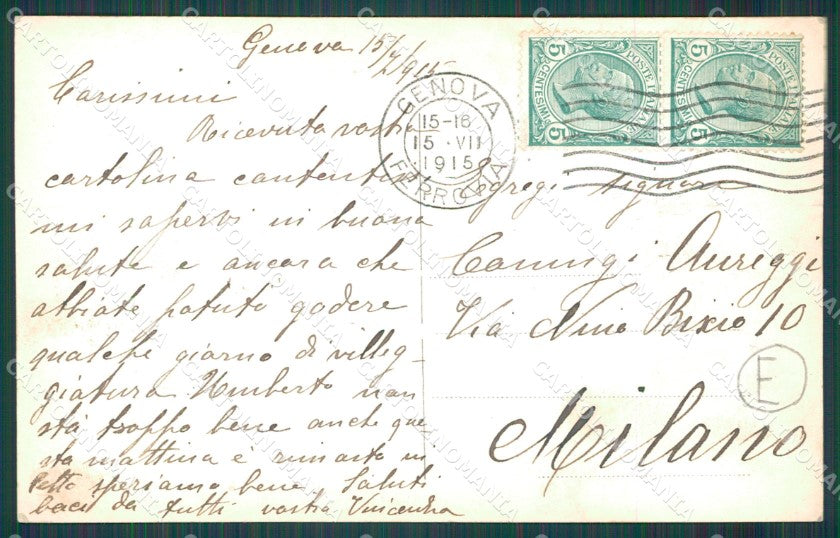 Genova 15/7/915
Carissimi
Ricevuta vostra
cartolina
mi sapervi in buona
salute e ancora che
abbiate potuto godere
qualche giorno di villeg-
giatura Umberto non
sta troppo bene anche que
sta mattina è rimasto in
letto speriamo bene Saluti
baci da tutti vostra Vincenza
GENOVA
15-16
15 · VII
1915
FERROVIA
5 CENTESIMI 5
POSTE ITALIANE
5 CENTESIMI 5
POSTE ITALIANE
egregi signori
Coniugi Aureggi
Via Nino Bixio 10
Milano
E
CARTOLINOMANIA